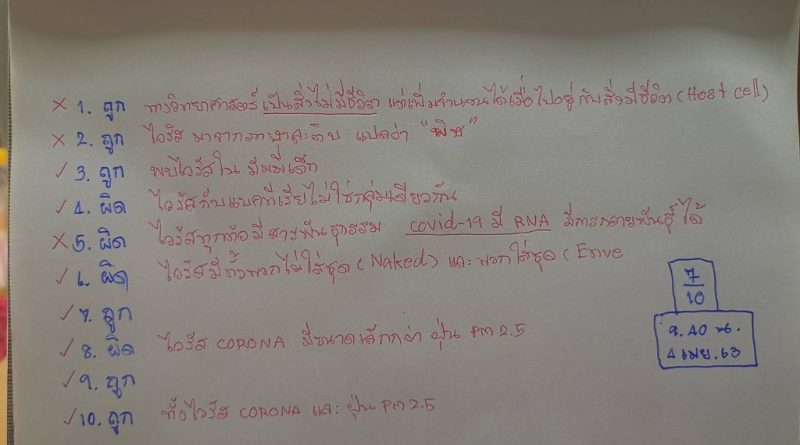 × 1. ถูก ทางวิทยาศาสตร์เป็นสิ่งไม่มีชีวิต แต่เพิ่มจำนวนได้เมื่อไปอยู่กับสิ่งมีชีวิต (Host cell)
× 2. ถูก ไวรัส มาจากภาษาละติน แปลว่า "พิษ"
✓ 3. ถูก พบไวรัสใน มัมมี่เด็ก
✓ 4. ผิด ไวรัสกับแบคทีเรียไม่ใช่กลุ่มเดียวกัน
× 5. ผิด ไวรัสทุกตัวมีสารพันธุกรรม covid-19 มี RNA มีการกลายพันธุ์ได้
✓ 6. ผิด ไวรัสมีทั้งพวกไม่ใส่ชุด (Naked) และพวกใส่ชุด (Enve
✓ 7. ถูก
✓ 8. ผิด ไวรัส CORONA มีขนาดเล็กกว่า ฝุ่น PM 2.5
✓ 9. ถูก
✓ 10. ถูก ทั้งไวรัส CORONA และ ฝุ่น PM 2.5
7
10
9.40 น.
4 เมย. 63